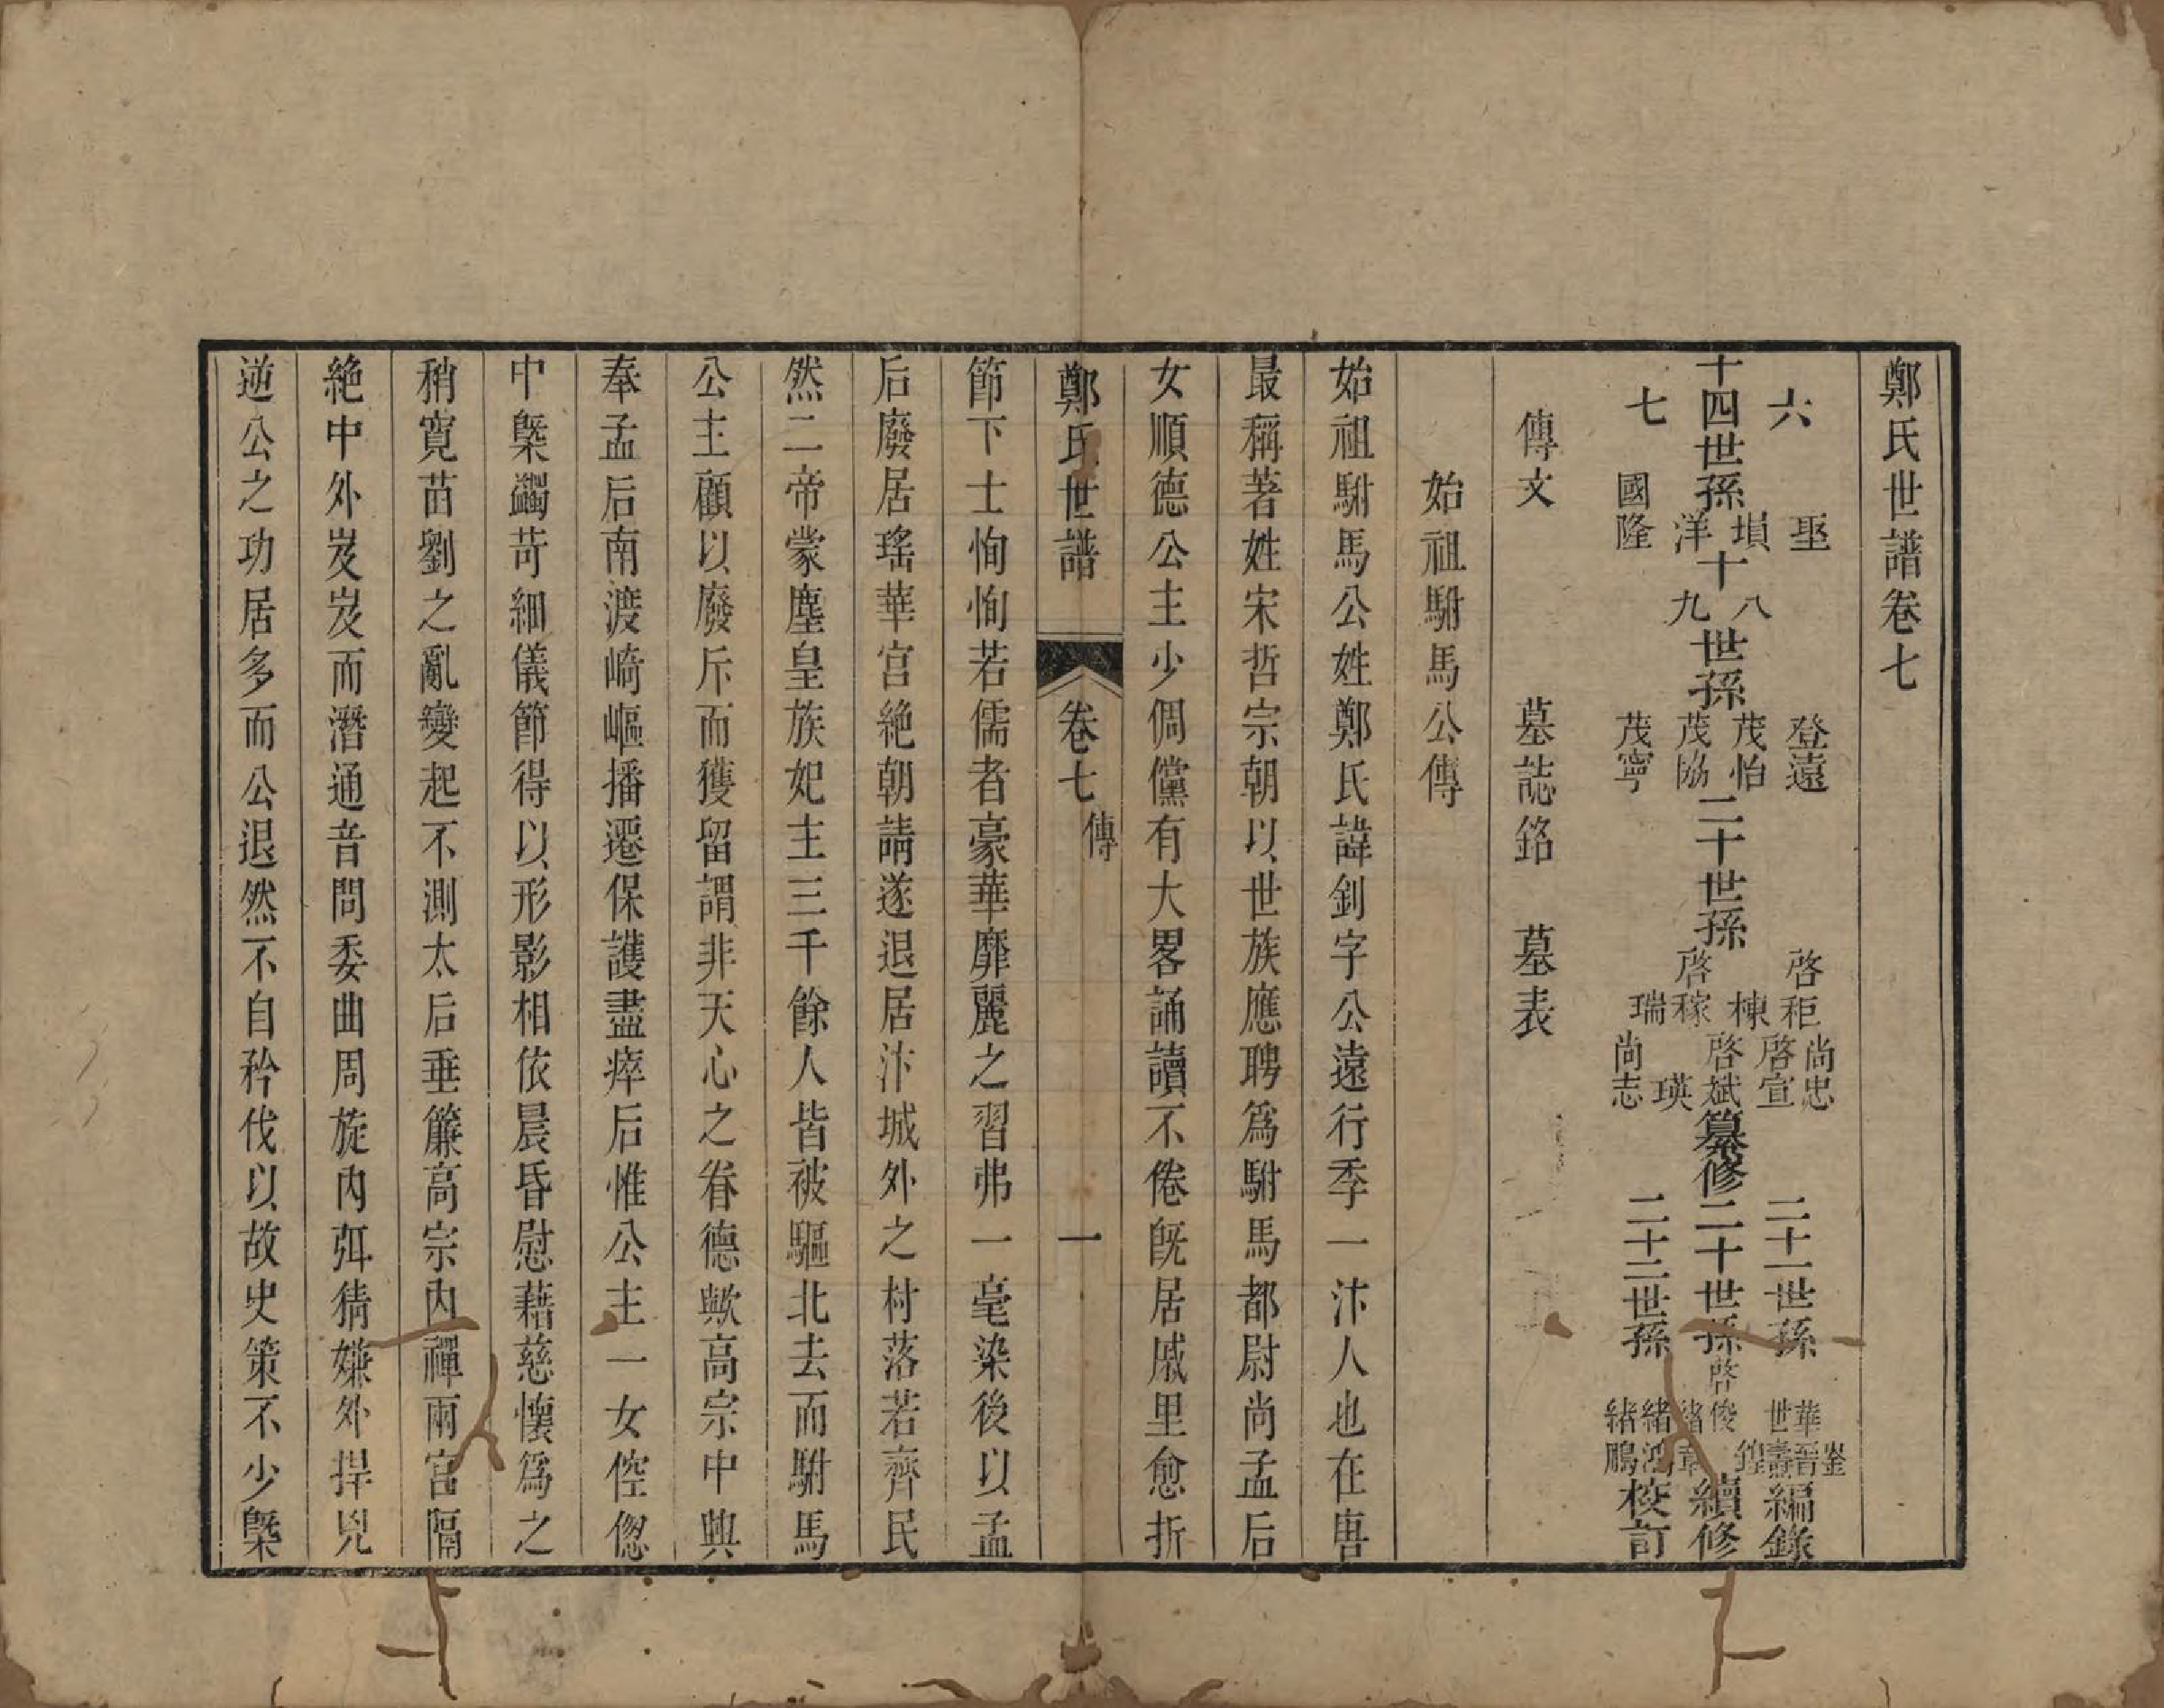 鄭氏世譜卷七
六 聖 登遠 啓秬 尚忠 二十一世孫 華晉 崟 編錄
塤 八 茂怡 棟 啓宣 世壽 鍠
十四世孫 十 世孫 二十世孫 啓斌 纂修 二十世孫 啓俊 續修
洋 九 茂協 啓稼 瑛 緒章
七 國隆 茂寧 瑞 尚志 二十二世孫 緒鴻 緒鵬 校訂
傳文 墓誌銘 墓表
始祖駙馬公傳
始祖駙馬公姓鄭氏諱釗字公遠行季一汴人也在唐
最稱著姓宋哲宗朝以世族應聘爲駙馬都尉尚孟后
女順德公主少倜儻有大畧誦讀不倦旣居戚里愈折
鄭氏世譜 卷七 傳 一
節下士恂恂若儒者豪華靡麗之習弗一毫染後以孟
后廢居瑤華宫絶朝請遂退居汴城外之村落若齊民
然二帝蒙塵皇族妃主三千餘人皆被驅北去而駙馬
公主顧以廢斥而獲留謂非天心之眷德歟高宗中興
奉孟后南渡崎嶇播遷保護盡瘁后惟公主一女倥傯
中槩蠲苛細儀節得以形影相依晨昏慰藉慈懷爲之
稍寛苗劉之亂變起不測太后垂簾高宗內禪兩宮隔
絶中外岌岌而潛通音問委曲周旋內弭猜嫌外捍兇
逆公之功居多而公退然不自矜伐以故史策不少槩